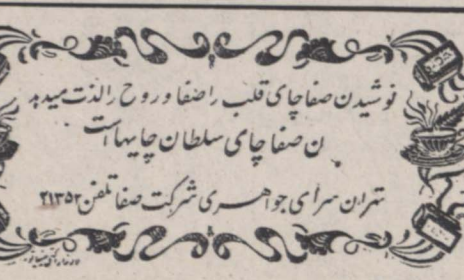 نوشیدن صفا چای قلب را صفا و روح را لذت میدهد
ن صفا چای سلطان چایها است
تهران سرای جواهری شرکت صفا تلفن ۲۱۳۵۲